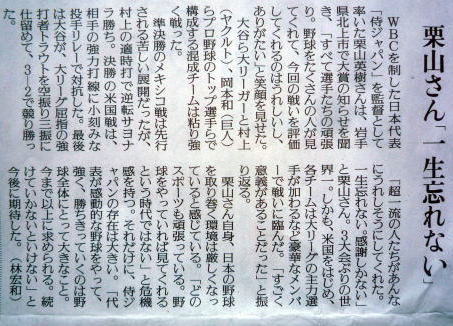 栗山さん「一生忘れない」
ＷＢＣを制した日本代表
「侍ジャパン」を監督として
率いた栗山英樹さんは、岩手
県北上市で大賞の知らせを聞
き、「すべて選手たちの頑張
り。野球をたくさんの人が見
てくれて、今回の戦いを評価
してくれるのはうれしいし、
ありがたい」と笑顔を見せた。
大谷ら大リーガーと村上
（ヤクルト）、岡本和（巨人）
らプロ野球のトップ選手らで
構成する混成チームは粘り強
く戦った。
準決勝のメキシコ戦は先行
される苦しい展開だったが、
村上の適時打で逆転サヨナ
ラ勝ち。決勝の米国戦は、
相手の強力打線に小刻みな
投手リレーで対抗した。最後
は大谷が、大リーグ屈指の強
打者トラウトを空振り三振に
仕留めて、３―２で競り勝っ
「超一流の人たちがあんな
にうれしそうにしてくれた。
一生忘れない。感謝しかない」
と栗山さん。３大会ぶりの世
界一。しかも、米国をはじめ、
各チームは大リーグの主力選
手が加わるなど豪華なメンバ
ーで戦いに臨んだ。「すごく
意義があることだった」と振
り返る。
栗山さん自身、日本の野球
を取り巻く環境は厳しくなっ
ていると感じている。「どの
スポーツも頑張っている。野
球をやっていれば見てくれる
という時代ではない」と危機
感を持つ。それだけに、侍ジ
ャパンの存在は大きい。「代
表が感動的な野球をやって、
強く、勝ちきっていくのは野
球全体にとって大きなこと。
今まで以上に求められる。続
けていかないといけない」と
今後に期待した。（林宏和）